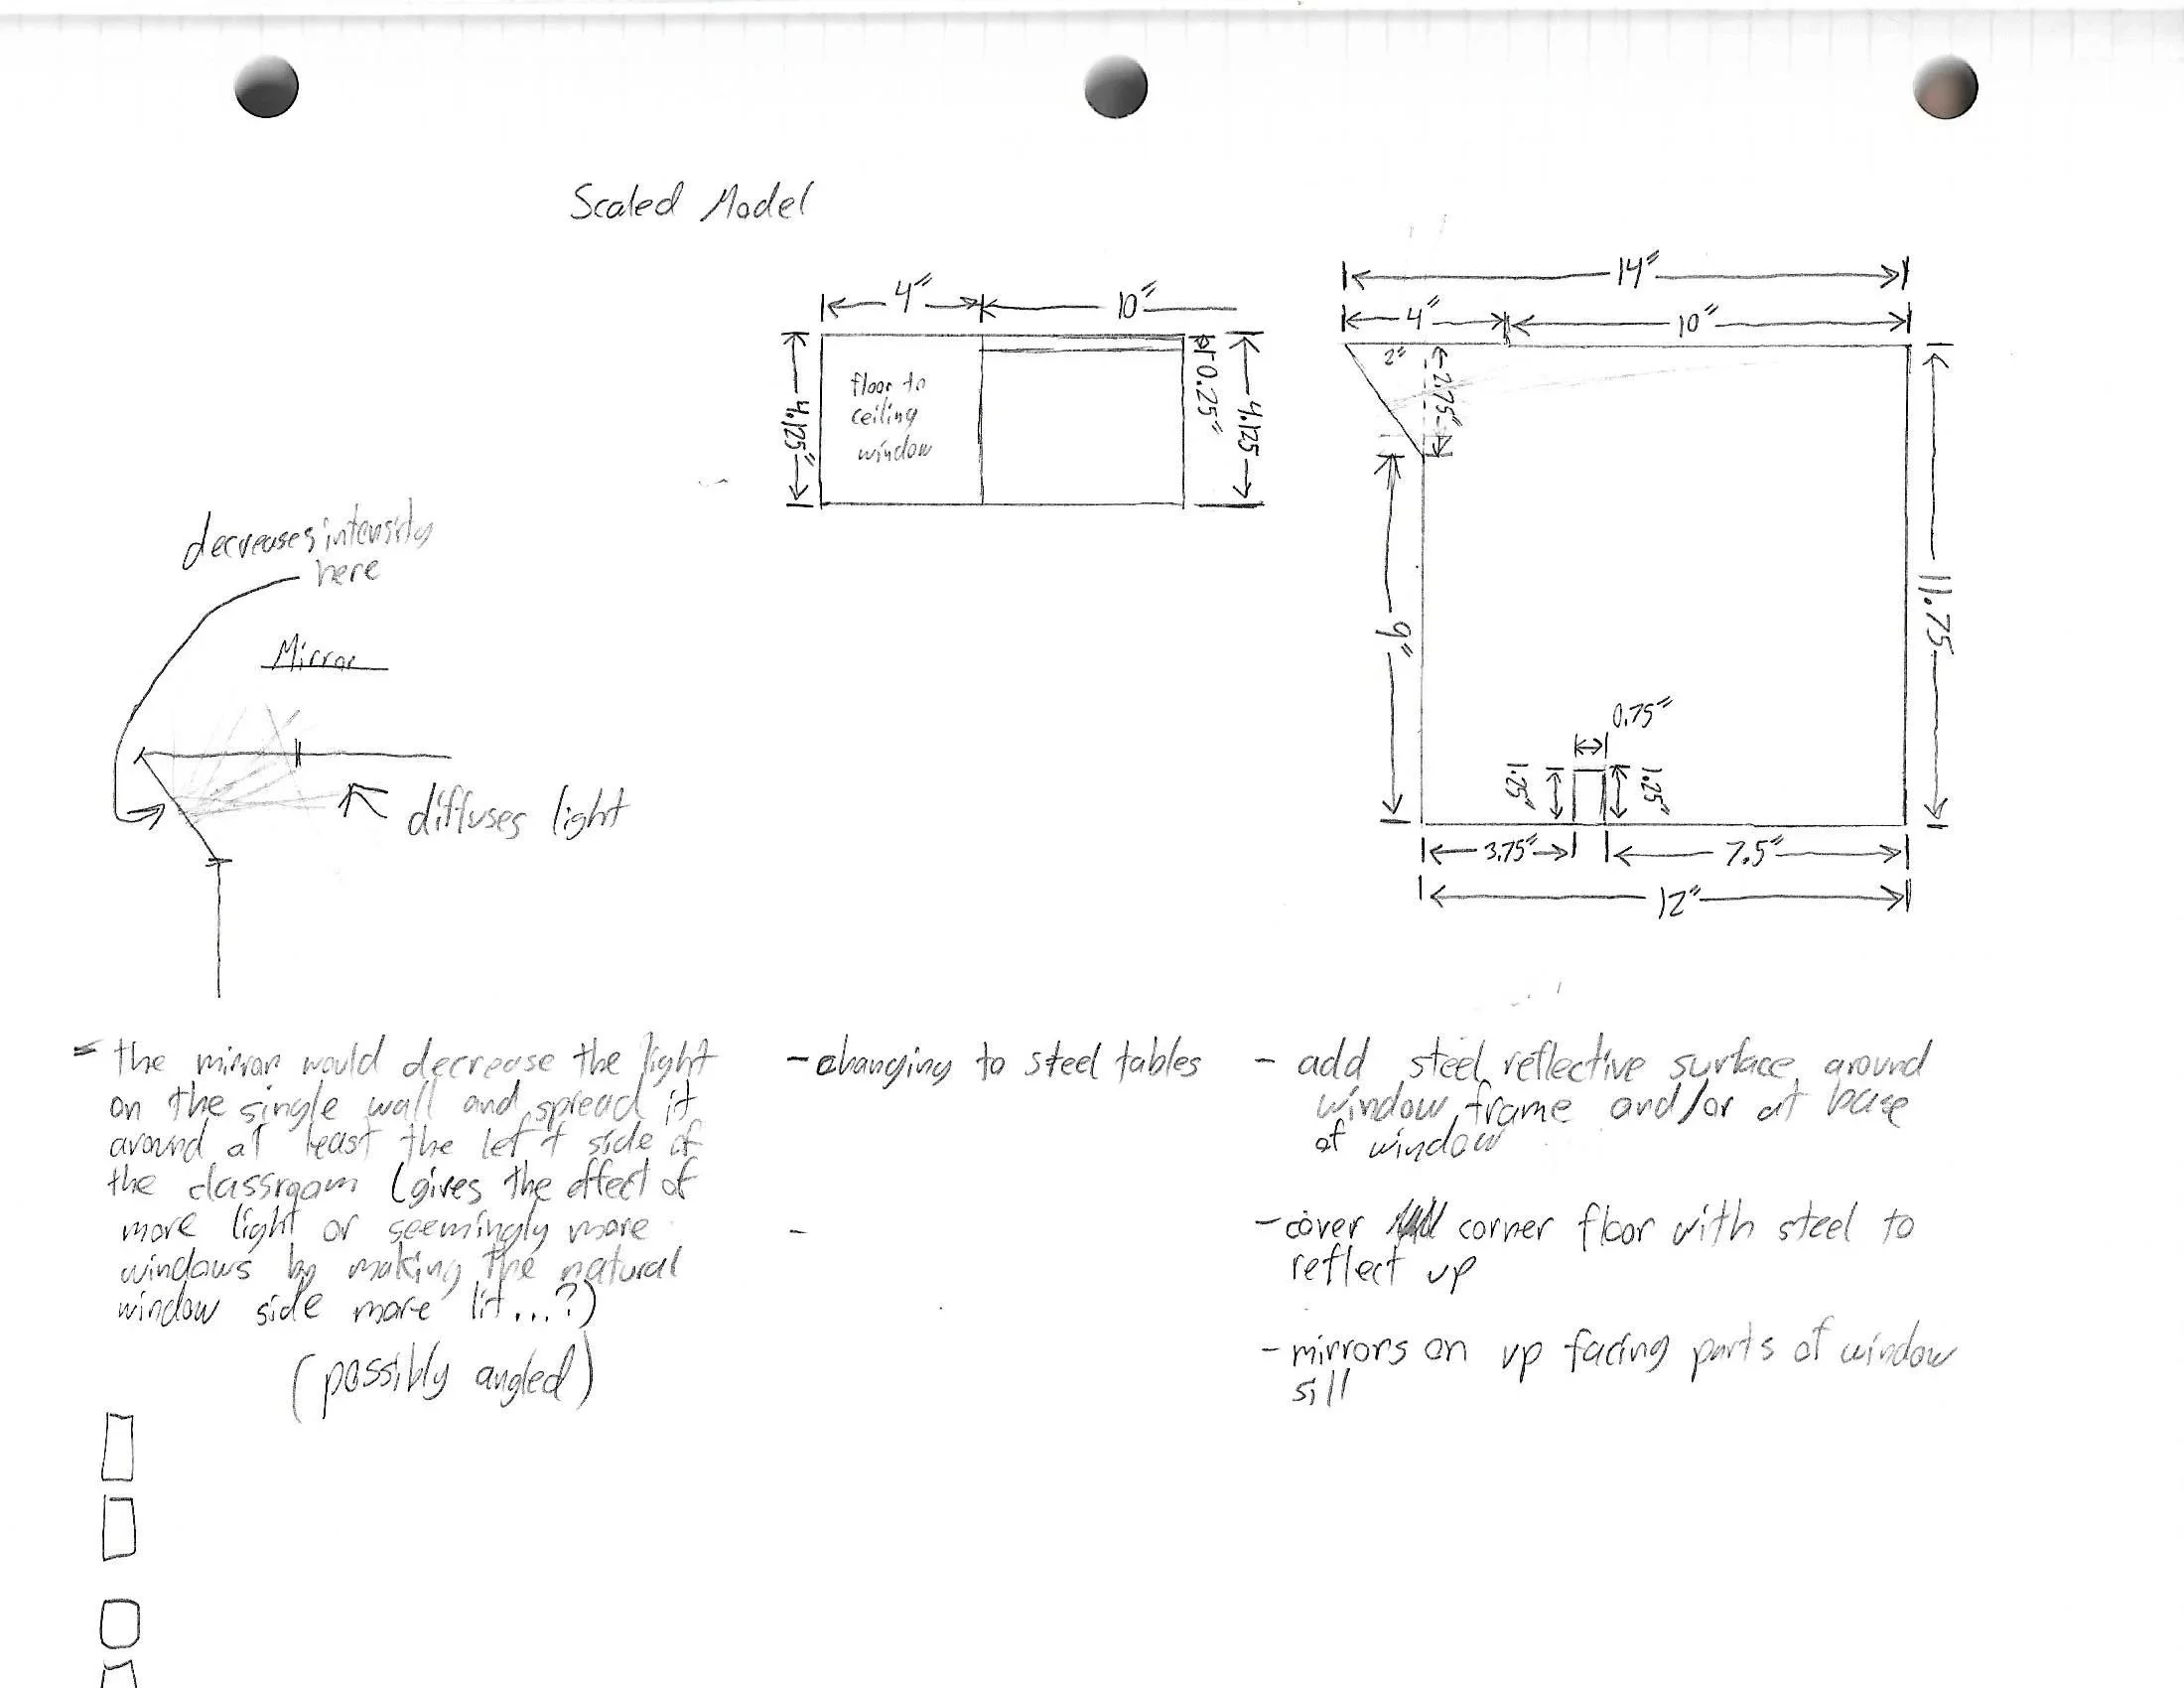 Scaled Model
4" 10"
4.125"
floor to
ceiling
window
0.25"
4.125
14"
4" 10"
2"
2.75"
9"
11.75
0.75"
1.25" 1.25"
3.75" 7.5"
12"
decreases intensity
here
Mirror
diffuses light
- the mirror would decrease the light
on the single wall and spread it
around at least the left side of
the classroom (gives the effect of
more light or seemingly more
windows by making the natural
window side more lit...?)
(possibly angled)
- changing to steel tables
-
- add steel reflective surface around
window frame and/or at base
of window
- cover corner floor with steel to
reflect up
- mirrors on up facing parts of window
sill